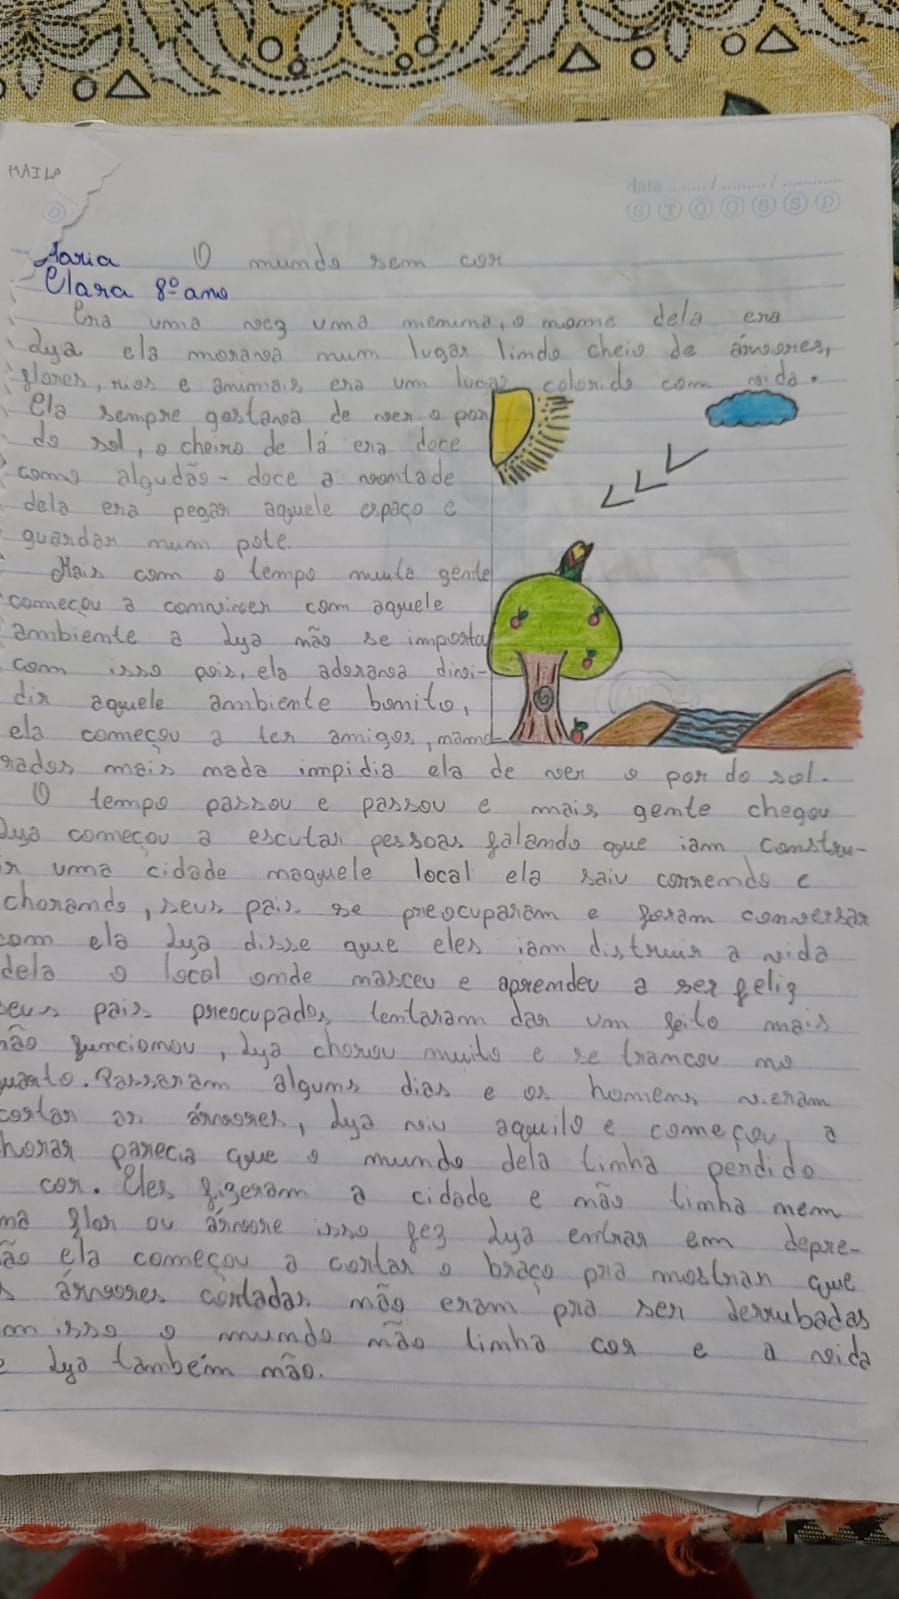 MAILA
data ......../......../............
D S T Q Q S S D
Maria O mundo sem cor
Clara 8º ano
Era uma vez uma menina, o nome dela era
Lya ela morava num lugar lindo cheio de árvores,
flores, rios e animais era um lugar colorido com vida.
Ela sempre gostava de ver o por
do sol, o cheiro de lá era doce
como algudão-doce a vontade
dela era pegar aquele espaço e
guardar num pote.
Mais com o tempo muita gente
começou a conviver com aquele
ambiente a Lya não se importa
com isso pois, ela adorava divi-
dir aquele ambiente bonito,
ela começou a ter amigos, namo-
rados mais nada impidia ela de ver o por do sol.
O tempo passou e passou e mais gente chegou
Lya começou a escutar pessoas falando que iam constru-
ir uma cidade naquele local ela saiu correndo e
chorando, seus pais se preocuparam e foram conversar
com ela Lya disse que eles iam distruir a vida
dela o local onde nasceu e aprendeu a ser feliz
seus pais preocupados tentaram dar um jeito mais
não funcionou, Lya chorou muito e se trancou no
quarto. Passaram alguns dias e os homens vieram
cortar as árvores, Lya viu aquilo e começou a
chorar parecia que o mundo dela tinha perdido
a cor. Eles fizeram a cidade e não tinha nem
uma flor ou árvore isso fez Lya entrar em depre-
são ela começou a cortar o braço pra mostrar que
as árvores cortadas não eram pra ser derrubadas
com isso o mundo não tinha cor e a vida
de Lya também não.